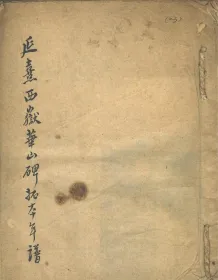 延熹西嶽華山碑拓本年譜